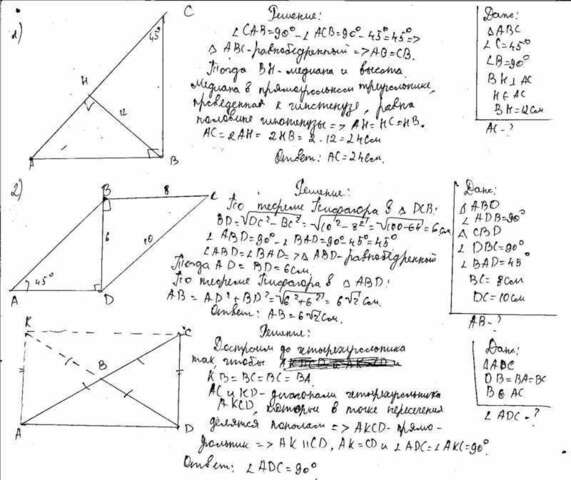 1)
C
45°
H
12
A
B
Решение:
∠CAB=90°-∠ACB=90°-45°=45°=>
△ABC-равнобедренный=>AB=CB.
Тогда BH-медиана и высота
Медиана в прямоугольном треугольнике,
проведенная к гипотенузе, равна
половине гипотенузы=>AH=HC=HB.
AC=2AH=2HB=2·12=24см.
Ответ: AC=24см.
Дано:
△ABC
∠C=45°
∠B=90°
BH⊥AC
H∈AC
BH=12см
AC-?
2)
B
8
C
6
10
A
45°
D
Решение:
По теореме Пифагора в △DCB:
BD=√DC²-BC²=√10²-8²=√100-64=6см
∠ABD=90°-∠BAD=90°-45°=45°
∠ABD=∠BAD=>△ABD-равнобедренный
Тогда AD=BD=6см
По теореме Пифагора в △ABD:
AB=AD²+BD²=√6²+6²=6√2см.
Ответ: AB=6√2см.
Дано:
△ABD
∠ADB=90°
△CBD
∠DBC=90°
∠BAD=45°
BC=8см
DC=10см
AB-?
K
C
B
A
D
Решение:
Достроим до четырехугольника
так чтобы
KB=BC=BC=BA
AC и KD-диагонали четырехугольника
AKCD, которые в точке пересечения
делятся пополам=>AKCD-прямо-
угольник=>AK||CD, AK=CD и ∠ADC=∠AKC=90°
Ответ: ∠ADC=90°
Дано:
△ADC
DB=BA=BC
B∈AC
∠ADC-?